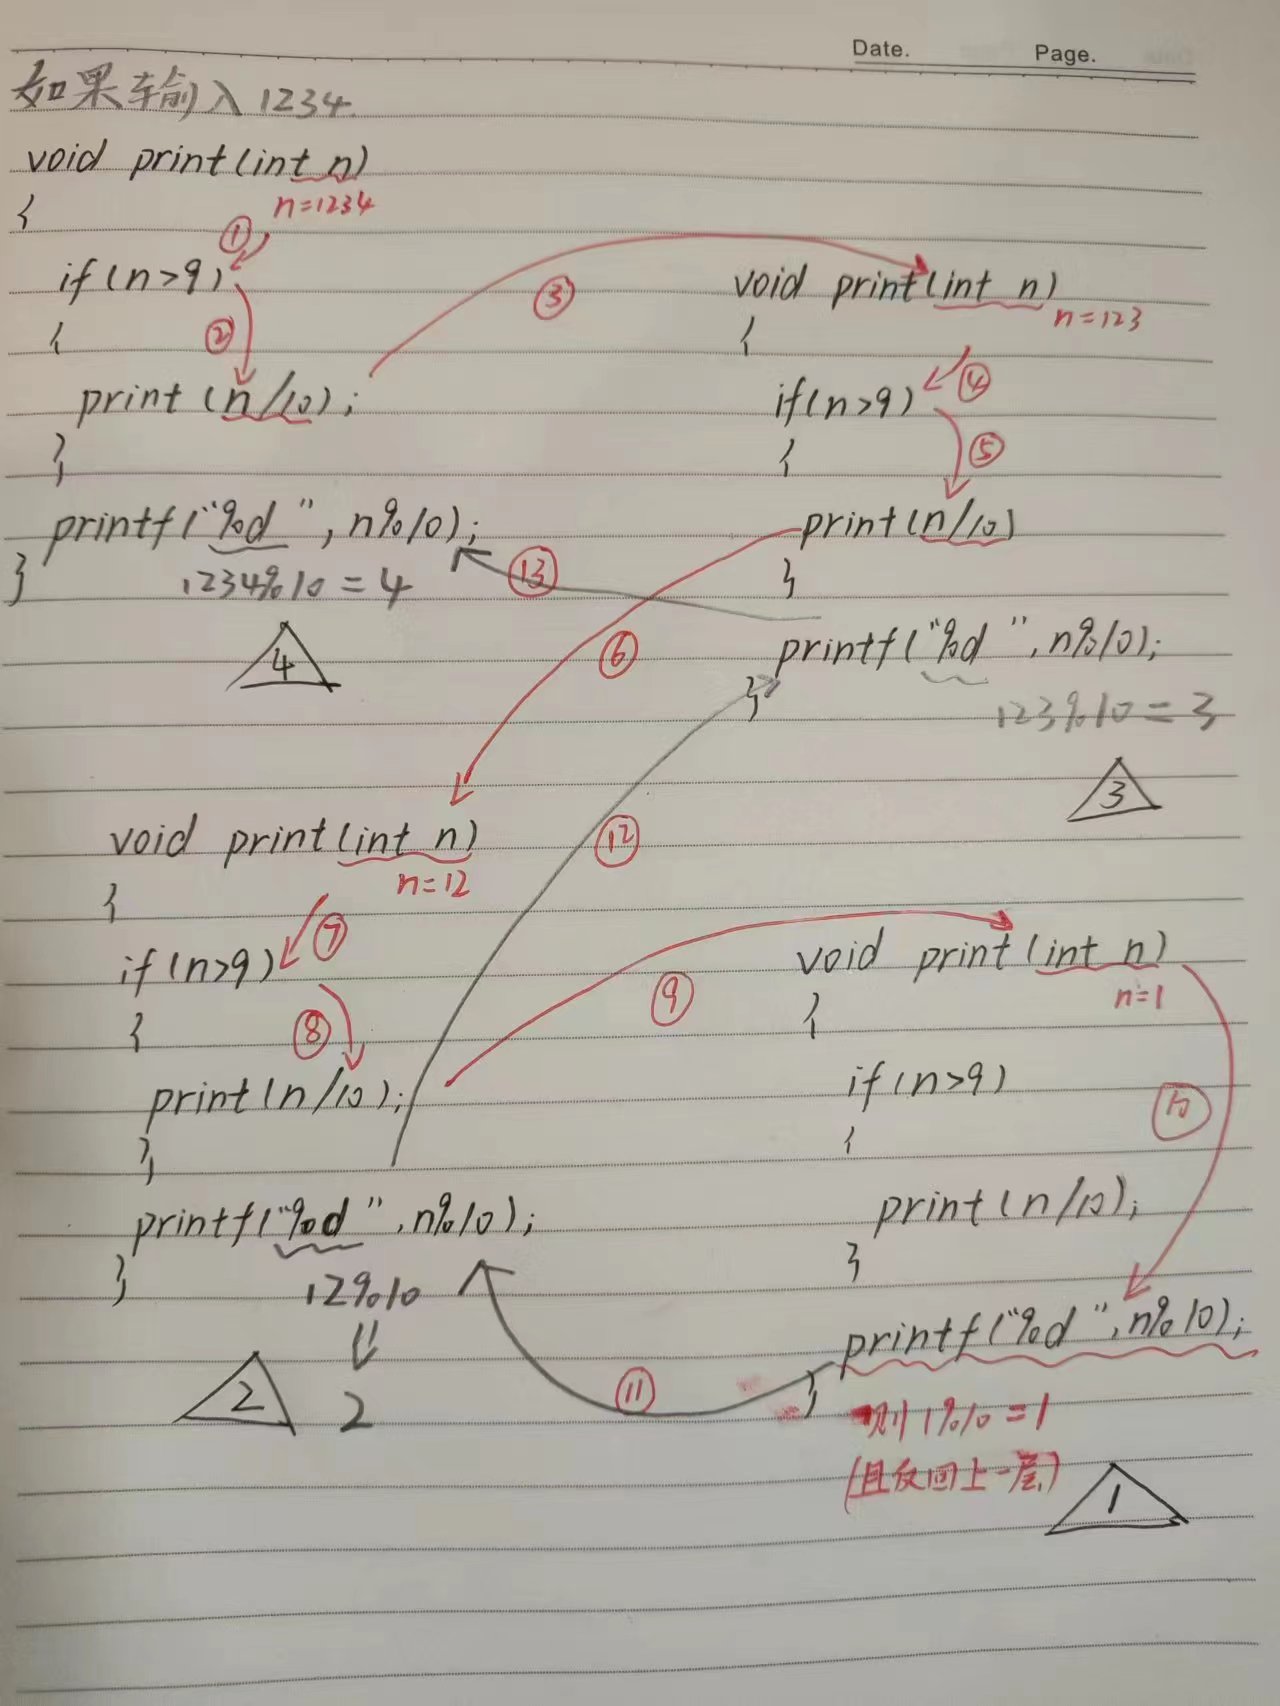 Date. Page.
如果输入1234.
void print(int n)
n=1234
{
①
if(n>9)
②
{
print(n/10);
}
printf("%d ", n%10);
}
1234%10=4
4
③
void print(int n)
n=123
{
④
if(n>9)
⑤
{
print(n/10)
}
⑬
⑥
printf("%d ", n%10);
}
123%10=3
3
⑫
void print(int n)
n=12
{
⑦
if(n>9)
⑧
{
print(n/10);
}
printf("%d ", n%10);
}
12%10
2
2
⑨
void print(int n)
n=1
{
if(n>9)
⑩
{
print(n/10);
}
printf("%d ", n%10);
}
⑪
则1%10=1
(且反回上一层)
1